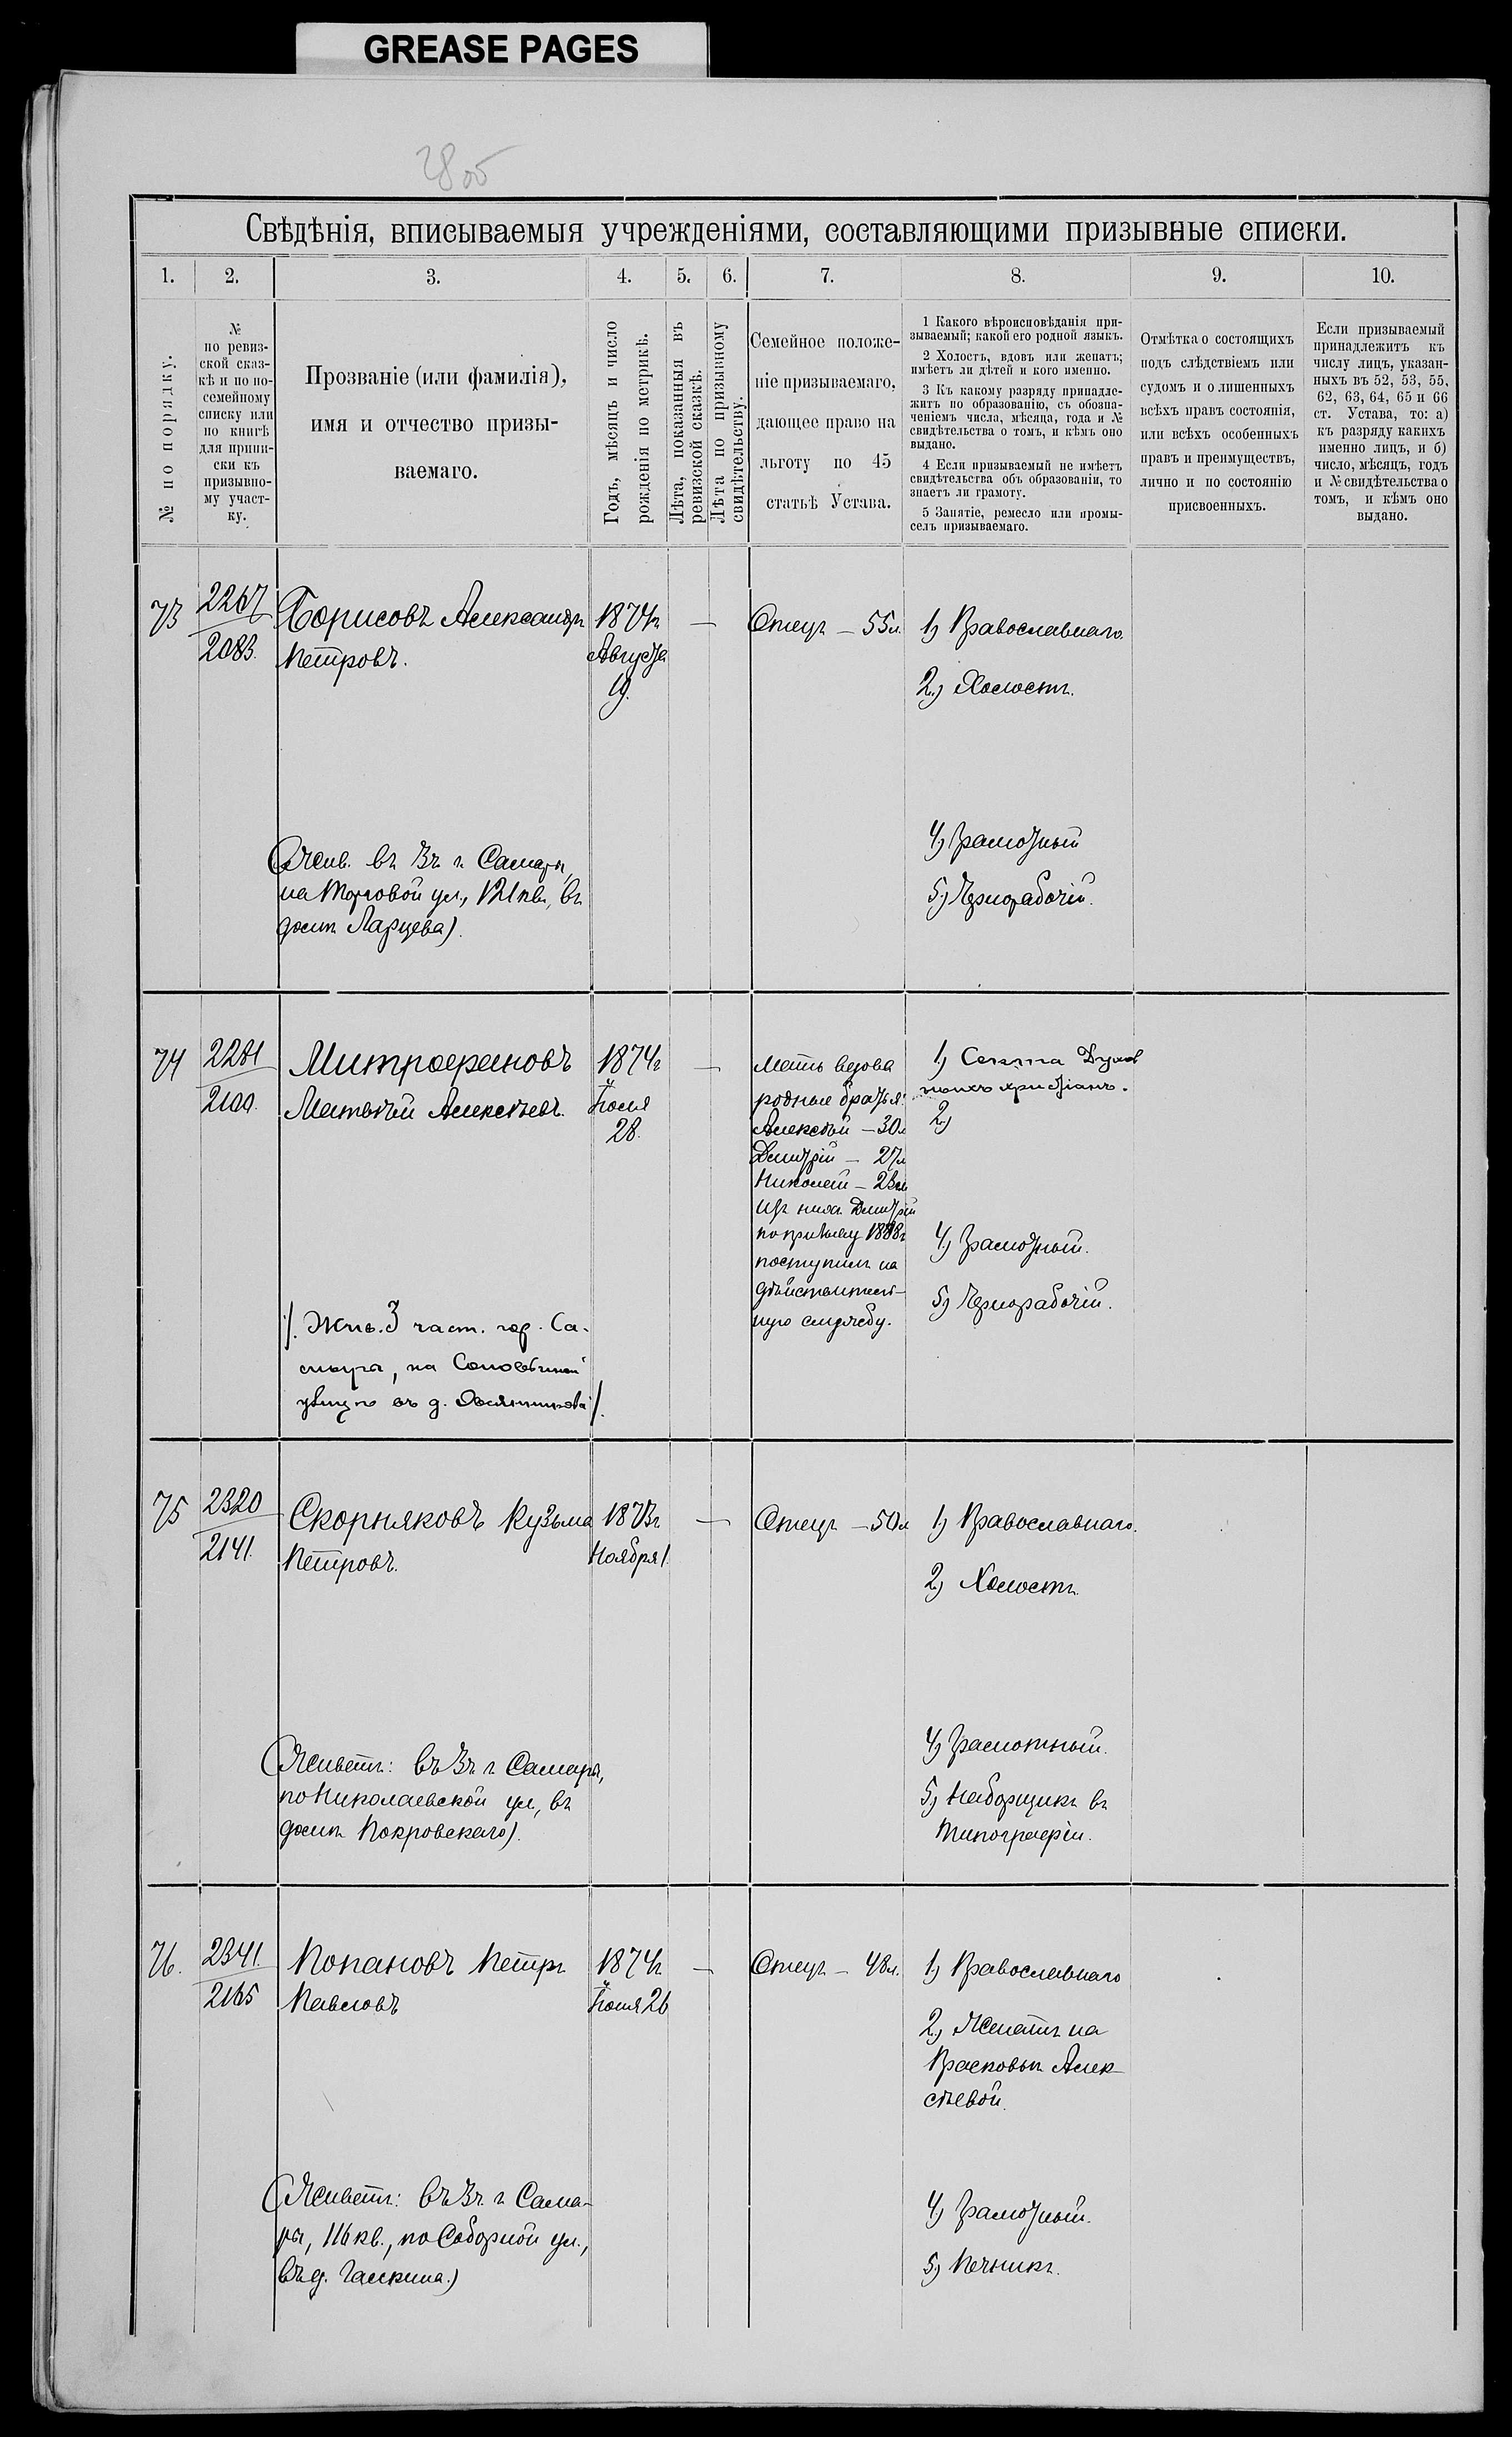 GREASE PAGES
Свѣдѣнія, вписываемыя учрежденіями, составляющими призывные списки.
1. 2. 3. 4. 5. 6. 7. 8. 9. 10.
№ по порядку.
№
по ревиз-
ской сказ-
кѣ и по по-
семейному
списку или
по книгѣ
для припи-
ски къ
призывно-
му участ-
ку.
Прозваніе (или фамилія),
имя и отчество призы-
ваемаго.
Годъ, мѣсяцъ и число
рожденія по метрикѣ.
Лѣта, показанныя въ
ревизской сказкѣ.
Лѣта по призывному
свидѣтельству.
Семейное положе-
ніе призываемаго,
дающее право на
льготу по 45
статьѣ Устава.
1 Какого вѣроисповѣданія при-
зываемый; какой его родной языкъ.
2 Холостъ, вдовъ или женатъ;
имѣетъ ли дѣтей и кого именно.
3 Къ какому разряду принадле-
житъ по образованію, съ обозна-
ченіемъ числа, мѣсяца, года и №
свидѣтельства о томъ, и кѣмъ оно
выдано.
4 Если призываемый не имѣетъ
свидѣтельства объ образованіи, то
знаетъ ли грамоту.
5 Занятіе, ремесло или промы-
селъ призываемаго.
Отмѣтка о состоящихъ
подъ слѣдствіемъ или
судомъ и о лишенныхъ
всѣхъ правъ состоянія,
или всѣхъ особенныхъ
правъ и преимуществъ,
лично и по состоянію
присвоенныхъ.
Если призываемый
принадлежитъ къ
числу лицъ, указан-
ныхъ въ 52, 53, 55,
62, 63, 64, 65 и 66
ст. Устава, то: а)
къ разряду какихъ
именно лицъ, и б)
число, мѣсяцъ, годъ
и № свидѣтельства о
томъ, и кѣмъ оно
выдано.
73
2267
2083.
Борисовъ Александръ
Петровъ.
1874г.
Августа
19.
—
Отецъ – 55л.
1) Православнаго.
2.) Холостъ.
4) Грамотный
5.) Чернорабочій.
(Жив. въ 3ч. г. Самары,
на Торговой ул., 121 кв., въ
домѣ Ларцева).
74
2281
2100.
Митрофановъ
Матвѣй Алексѣевъ.
1874г
Іюля
28.
—
Мать вдова
родные братья:
Алексѣй – 30л
Дмитрій – 27л
Николай – 23л
Изъ нихъ Дмитрій
по призыву 1888г
поступилъ на
дѣйствитель-
ную службу.
1) Секта Духов
ныхъ христіанъ.
2.)
4) Грамотный.
5.) Чернорабочій.
/. Жив. 3 част. гор. Са-
мара, на
улицѣ въ д. Овсянникова/.
75
2320
2141.
Скорняковъ Кузьма
Петровъ.
1873г
Ноября 1.
—
Отецъ – 50л
1) Православнаго.
2) Холостъ.
4) Грамотный.
5) Наборщикъ въ
типографіи.
(Живетъ: въ 3ч. г. Самары,
по Николаевской ул., въ
домѣ Покровскаго).
76.
2341.
2165
Попановъ Петръ
Павловъ
1874г.
Іюля 26
—
Отецъ – 48л.
1) Православнаго
2.) Женатъ на
Прасковьѣ Алек-
сѣевой.
4) Грамотный.
5.) Печникъ.
(Живетъ: въ 3ч. г. Сама-
ры, 116 кв., по Соборной ул.,
въ д. Галкина.)